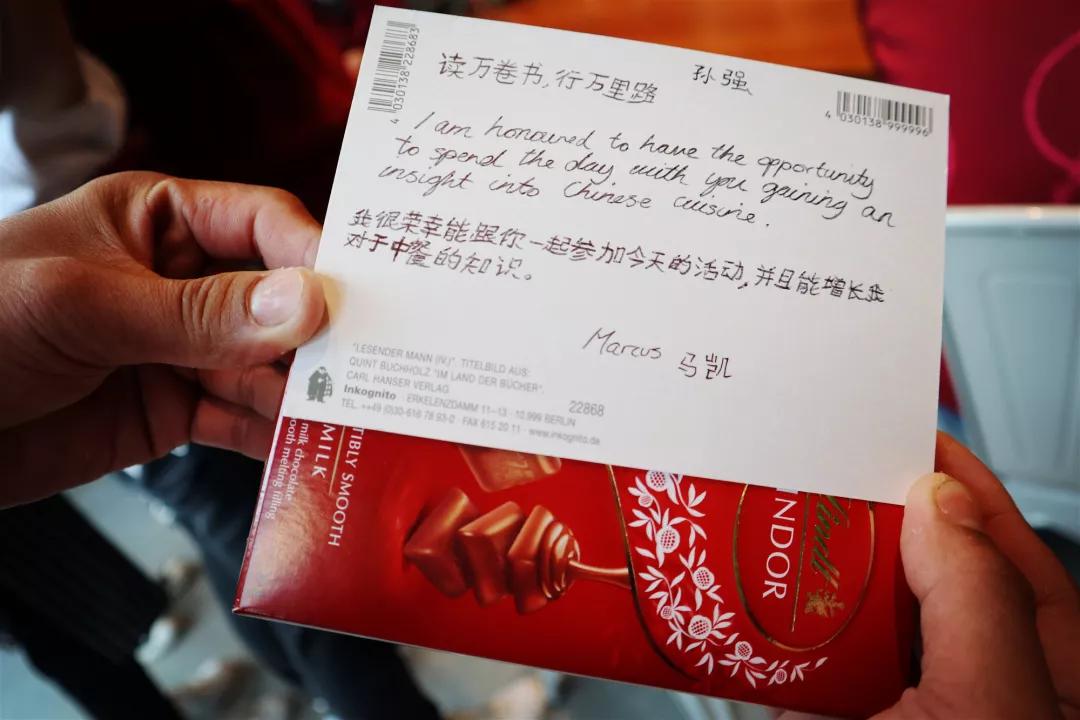 4 030138 228683
孙强
4 030138 999996
读万卷书,行万里路
I am honoured to have the opportunity
to spend the day with you gaining an
insight into Chinese cuisine.
我很荣幸能跟你一起参加今天的活动,并且能增长我
对于中餐的知识。
Marcus 马凯
"LESENDER MANN (IV.)". TITELBILD AUS:
QUINT BUCHHOLZ "IM LAND DER BÜCHER".
CARL HANSER VERLAG
Inkognito · ERKELENZDAMM 11–13 · 10.999 BERLIN
TEL. ++49 (0)30-616 78 93-0 · FAX 615 20 11 · www.inkognito.de
22868
TIBLY SMOOTH
MILK
milk chocolate
ooth melting filling
Lindt
INDOR